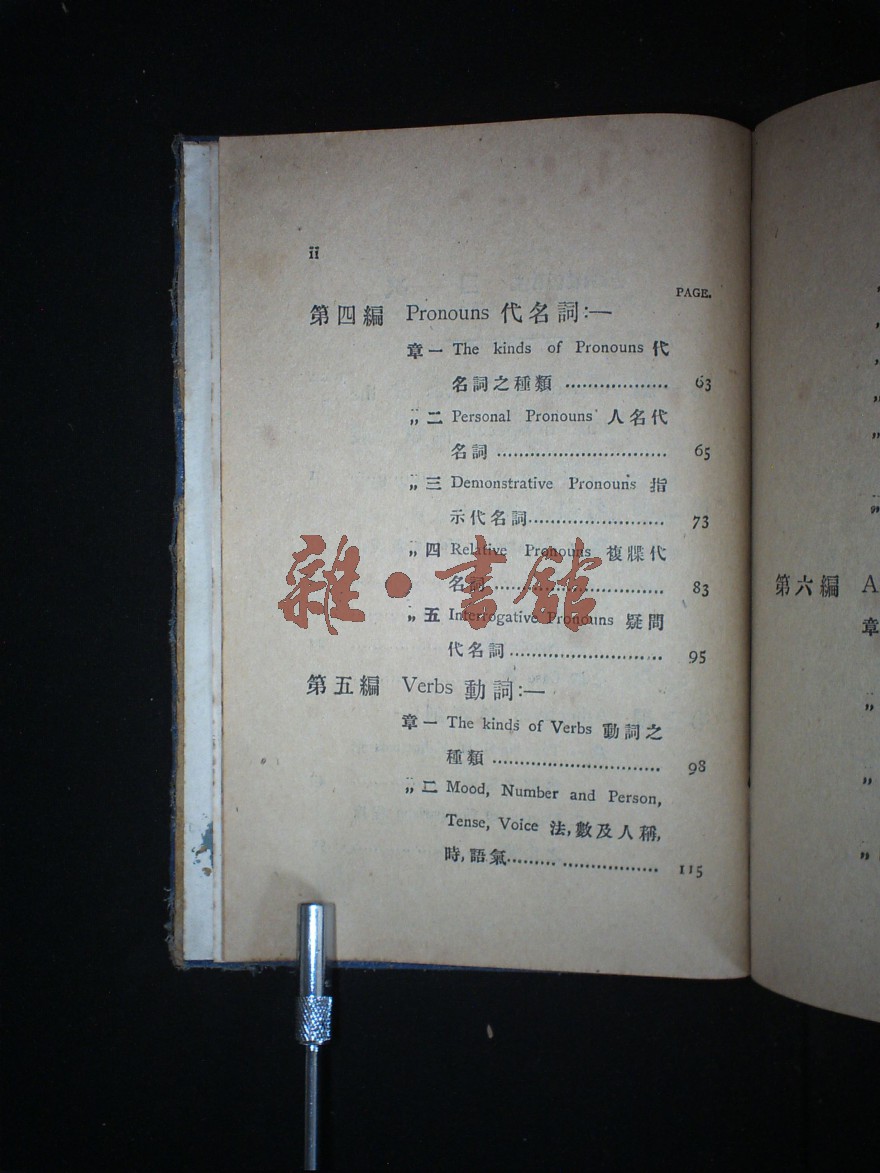 ii
PAGE.
第四編 Pronouns 代名詞:—
章一 The kinds of Pronouns 代
名詞之種類 .................. 63
„二 Personal Pronouns 人名代
名詞 .............................. 65
„三 Demonstrative Pronouns 指
示代名詞........................ 73
„四 Relative Pronouns 複牒代
名詞 .............................. 83
„五 Interrogative Pronouns 疑問
代名詞........................... 95
第五編 Verbs 動詞:—
章一 The kinds of Verbs 動詞之
種類 .............................. 98
„二 Mood, Number and Person,
Tense, Voice 法,數及人稱,
時,語氣......... ................. 115
雜•書館
第六編 A
章
„
„
„